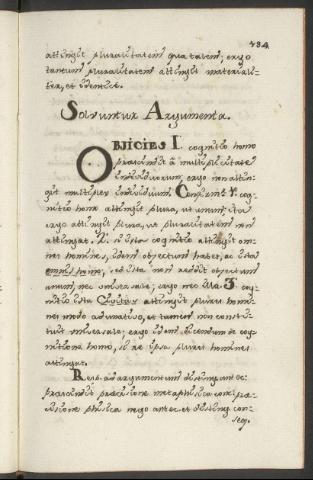 484
attingit pluralitatem qua talem; ergo
tantum pluralitatem attingit material-
ter, et identice.
Solvuntur Argumenta.
OBJICIES I. cognitio homo
præscindit à multiplicitate
individuorum; ergo non attin-
git multiplex individuum. Confirmt. 1º. cog-
nitio homo attingit plura, ut unum; ita
ergo attingit plura, ut pluralitatem non
attingat. 2. si ista cognitio attingit om-
nes homines, idem objectum habet, ac ista
omnis homo, sed ista non reddit objectum
unum, nec universale; ergo nec illa. 3. cog-
nitio ista attingit plures homi-
nes modo adunativo, et tamen non consti-
tuit universale; ergo idem dicendum de cog-
nitione homo, si re ipsa plures homines
attingat.
Resp. ad argumentum disting. ant.
præscindit præcisione metaphysica conc. præ-
cisione physica nego antec. et disting. con-
seq.